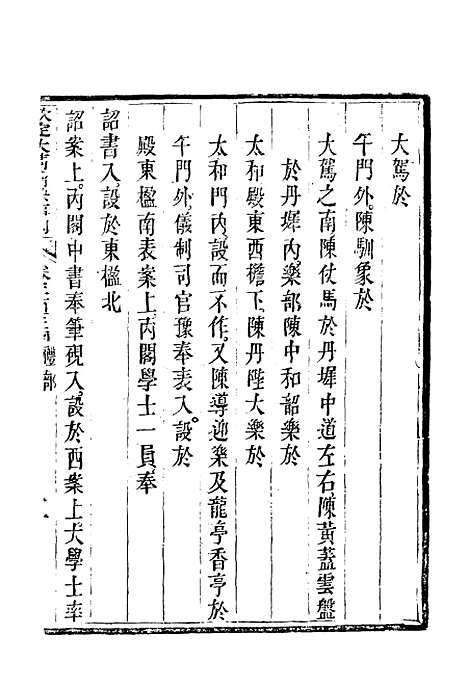 大駕於
午門外。陳馴象於
大駕之南。陳仗馬於丹墀中道左右。陳黃蓋雲盤
於丹墀內。樂部陳中和韶樂於
太和殿東西檐下。陳丹陛大樂於
太和門內。設而不作。又陳導迎樂及龍亭香亭於
午門外。儀制司官豫奉表入。設於
殿東楹南表案上。內閣學士一員奉
詔書入。設於東楹北
詔案上。內閣中書奉筆硯入。設於西案上。大學士率
禮部